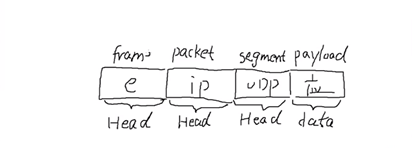 frame packet segment payload
e ip UDP
Head Head Head data